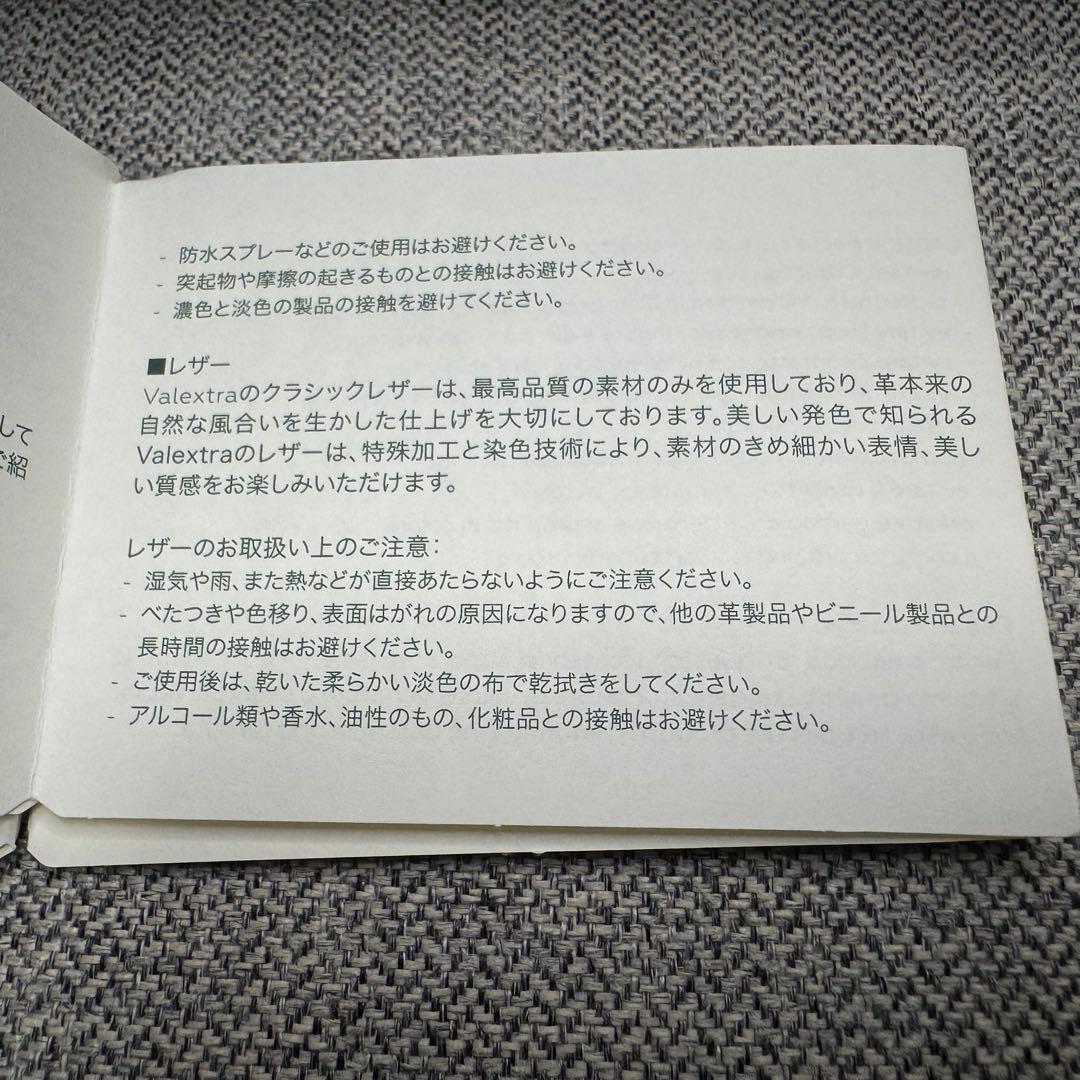 - 防水スプレーなどのご使用はお避けください。
- 突起物や摩擦の起きるものとの接触はお避けください。
- 濃色と淡色の製品の接触を避けてください。
■レザー
Valextraのクラシックレザーは、最高品質の素材のみを使用しており、革本来の
自然な風合いを生かした仕上げを大切にしております。美しい発色で知られる
Valextraのレザーは、特殊加工と染色技術により、素材のきめ細かい表情、美し
い質感をお楽しみいただけます。
レザーのお取扱い上のご注意：
- 湿気や雨、また熱などが直接あたらないようにご注意ください。
- べたつきや色移り、表面はがれの原因になりますので、他の革製品やビニール製品との
長時間の接触はお避けください。
- ご使用後は、乾いた柔らかい淡色の布で乾拭きをしてください。
- アルコール類や香水、油性のもの、化粧品との接触はお避けください。
して
ご紹